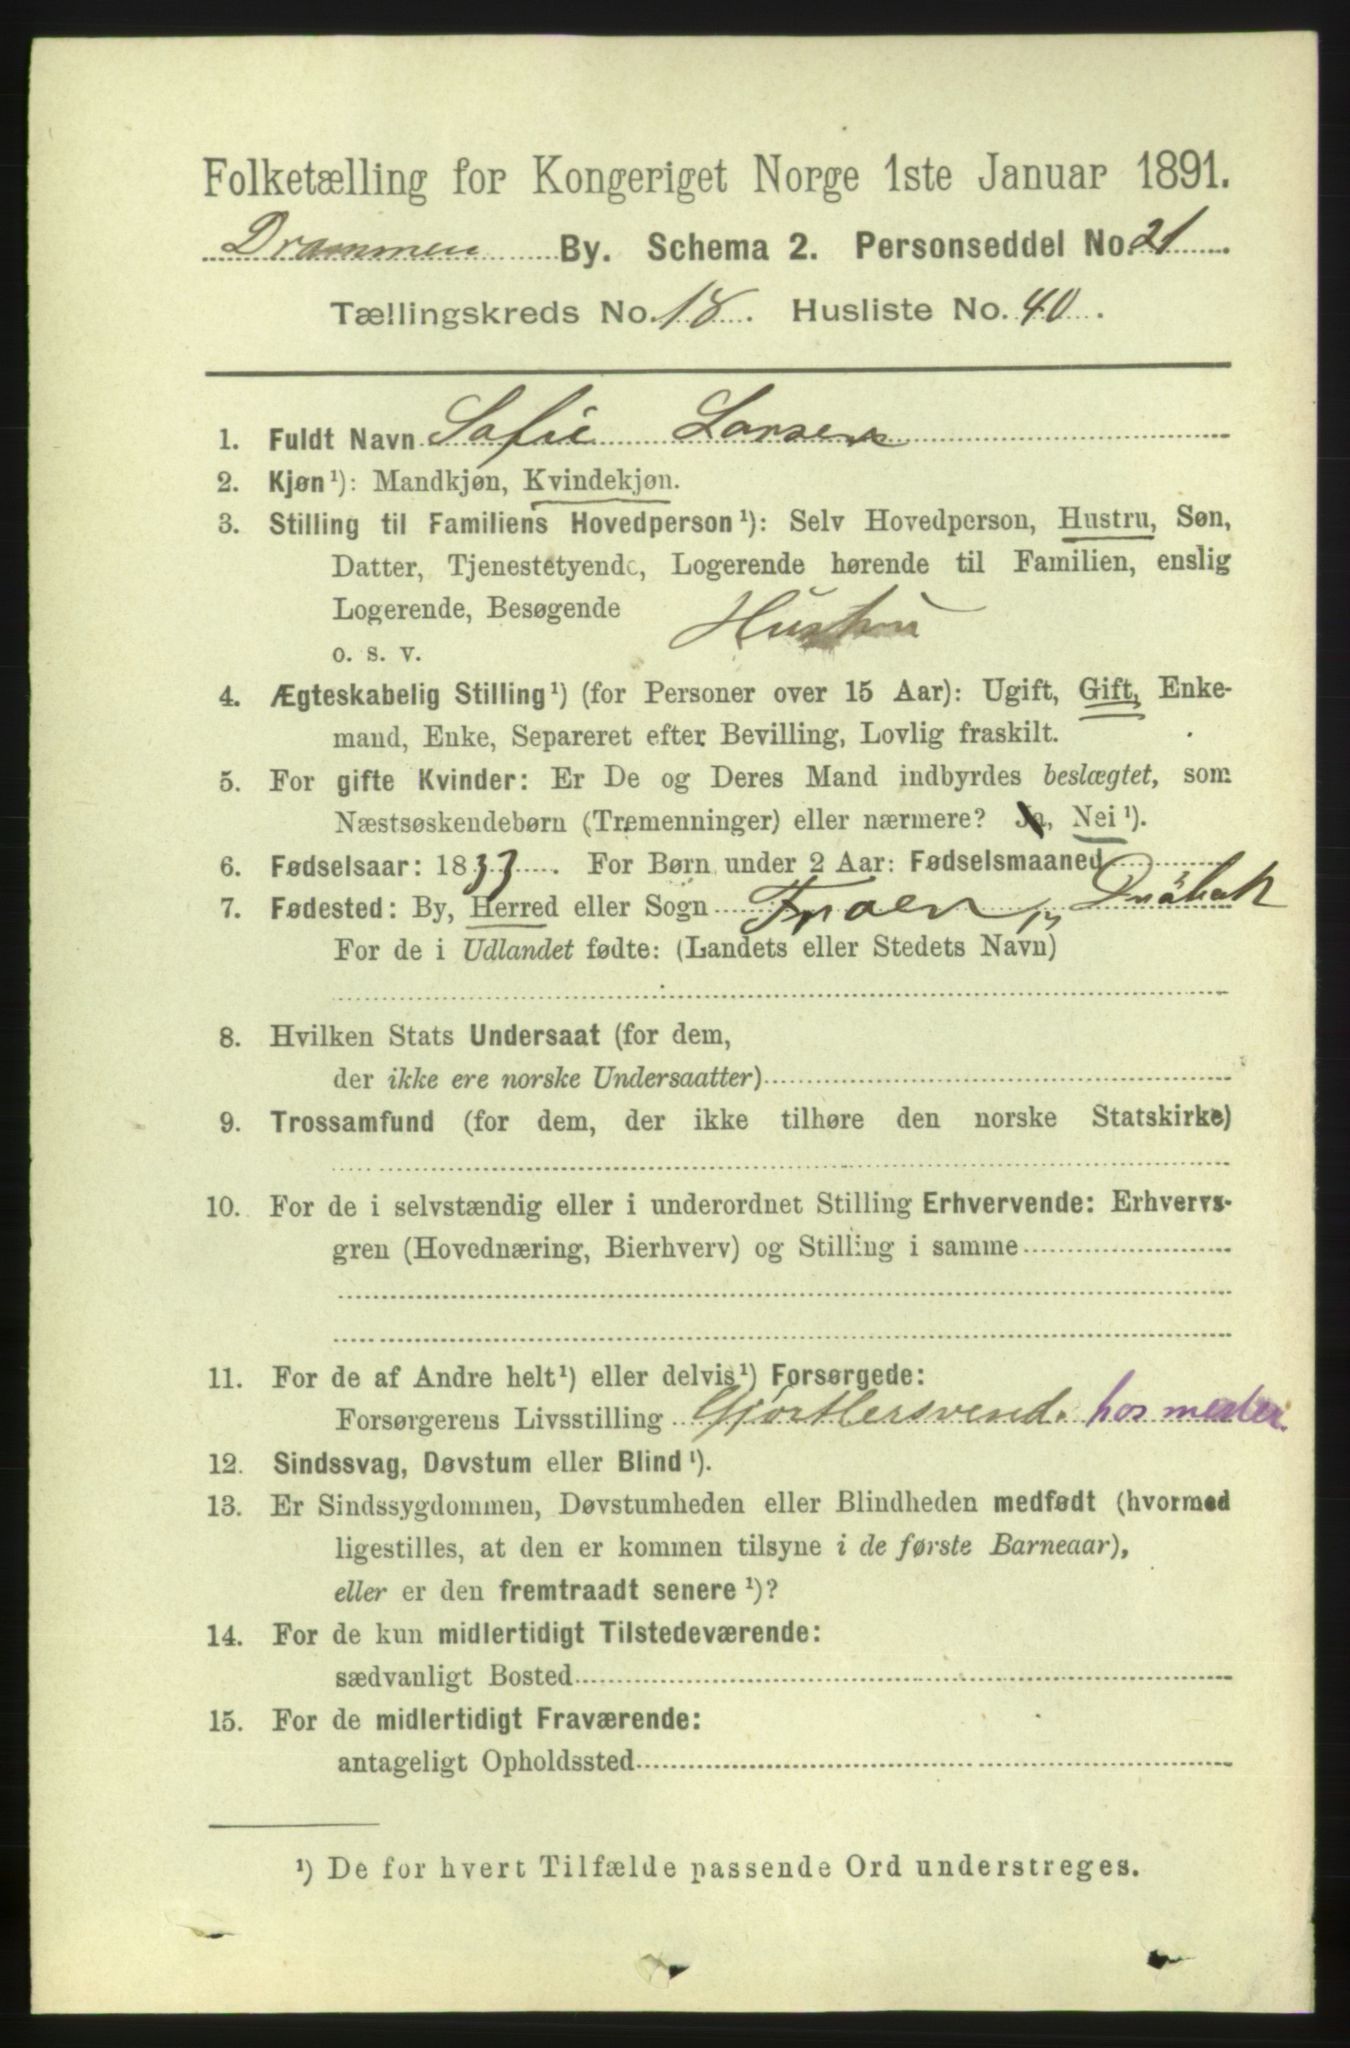 Folketælling for Kongeriget Norge 1ste Januar 1891.
Drammen By. Schema 2. Personseddel No. 21.
Tællingskreds No. 18. Husliste No. 40.
1. Fuldt Navn Sofie Larsen
2. Kjøn¹): Mandkjøn, Kvindekjøn.
3. Stilling til Familiens Hovedperson¹): Selv Hovedperson, Hustru, Søn,
Datter, Tjenestetyende, Logerende hørende til Familien, enslig
Logerende, Besøgende Hustru
o. s. v.
4. Ægteskabelig Stilling¹) (for Personer over 15 Aar): Ugift, Gift, Enke-
mand, Enke, Separeret efter Bevilling, Lovlig fraskilt.
5. For gifte Kvinder: Er De og Deres Mand indbyrdes beslægtet, som
Næstsøskendebørn (Tremenninger) eller nærmere? Ja, Nei¹).
6. Fødselsaar: 1833. For Børn under 2 Aar: Fødselsmaaned
7. Fødested: By, Herred eller Sogn Froen, Drøbak
For de i Udlandet fødte: (Landets eller Stedets Navn)
8. Hvilken Stats Undersaat (for dem,
der ikke ere norske Undersaatter)
9. Trossamfund (for dem, der ikke tilhøre den norske Statskirke)
10. For de i selvstændig eller i underordnet Stilling Erhvervende: Erhvervs-
gren (Hovednæring, Bierhverv) og Stilling i samme
11. For de af Andre helt¹) eller delvis¹) Forsørgede:
Forsørgerens Livsstilling Gjørtlersvend. hos mester.
12. Sindssvag, Døvstum eller Blind¹).
13. Er Sindssygdommen, Døvstumheden eller Blindheden medfødt (hvormed
ligestilles, at den er kommen tilsyne i de første Barneaar),
eller er den fremtraadt senere¹)?
14. For de kun midlertidigt Tilstedeværende:
sædvanligt Bosted
15. For de midlertidigt Fraværende:
antageligt Opholdssted
¹) De for hvert Tilfælde passende Ord understreges.